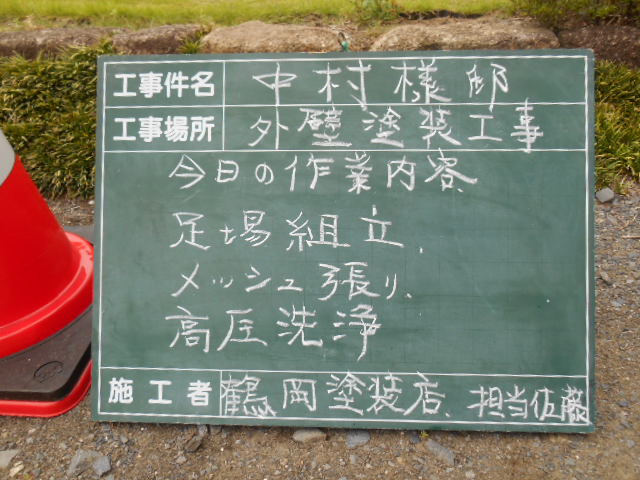 工事件名 中村様邸
工事場所 外壁塗装工事
今日の作業内容
足場組立、
メッシュ張り、
高圧洗浄
施工者 鶴岡塗装店、担当佐藤